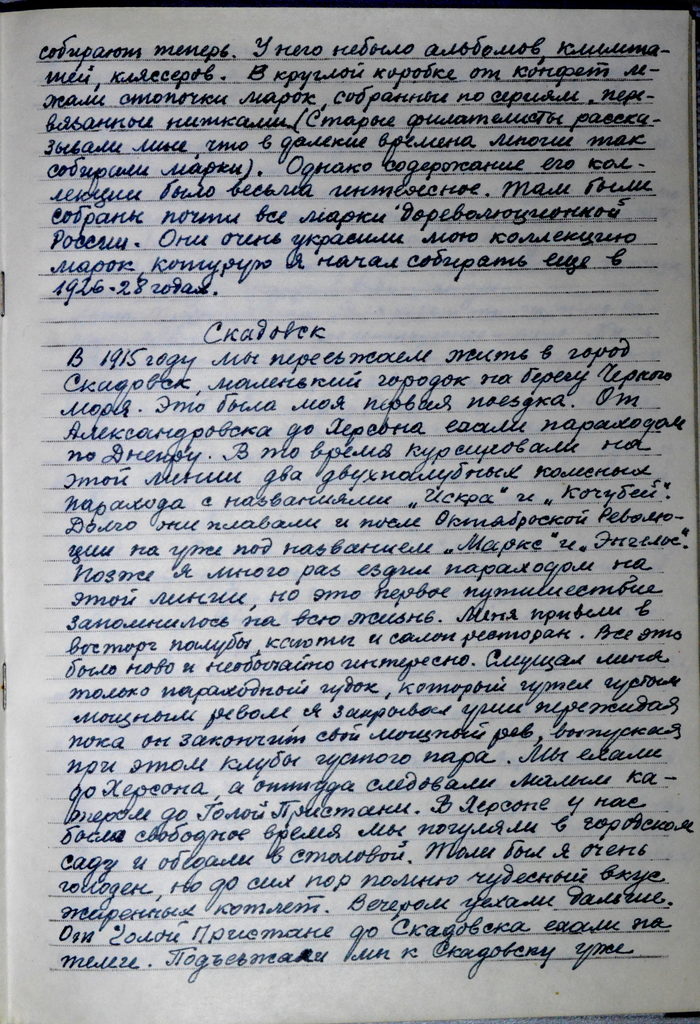 собирают теперь. У него небыло альбомов, климта-
шей, кляссеров. В круглой коробке от конфет ле-
жали стопочки марок, собранные по сериям, пере-
вязанные нитками. (Старые филателисты расска-
зывали мне, что в далекие времена многие так
собирали марки). Однако содержание его кол-
лекции было весьма интересное. Там были
собраны почти все марки "дореволюционной"
России. Они очень украсили мою коллекцию
марок, которую я начал собирать еще в
1926-28 годах.
Скадовск
В 1915 году мы переезжаем жить в город
Скадовск, маленький городок на берегу Черного
моря. Это была моя первая поездка. От
Александровска до Херсона ехали параходом
по Днепру. В то время курсировали на
этой линии два двухпалубных колесных
парахода с названиями „Искра" и „Кочубей".
Долго они плавали и после Октябрьской Револю-
ции но уже под названием „Маркс" и „Энгельс".
Позже я много раз ездил параходом на
этой линии, но это первое путишествие
запомнилось на всю жизнь. Меня привели в
восторг палубы, каюты и салон ресторан. Все это
было ново и необычайно интересно. Смущал меня
только параходный гудок, который гудел густым
мощным ревом я закрывал уши пережидая
пока он закончит свой мощный рев, выпуская
при этом клубы густого пара. Мы ехали
до Херсона, а оттуда следовали малым ка-
тером до Голой Пристани. В Херсоне у нас
было свободное время мы погуляли в городском
саду и обедали в столовой. Толи был я очень
голоден, но до сих пор помню чудесный вкус
жаренных котлет. Вечером уехали дальше.
От Голой Пристане до Скадовска ехали на
телеге. Подъезжали мы к Скадовску уже